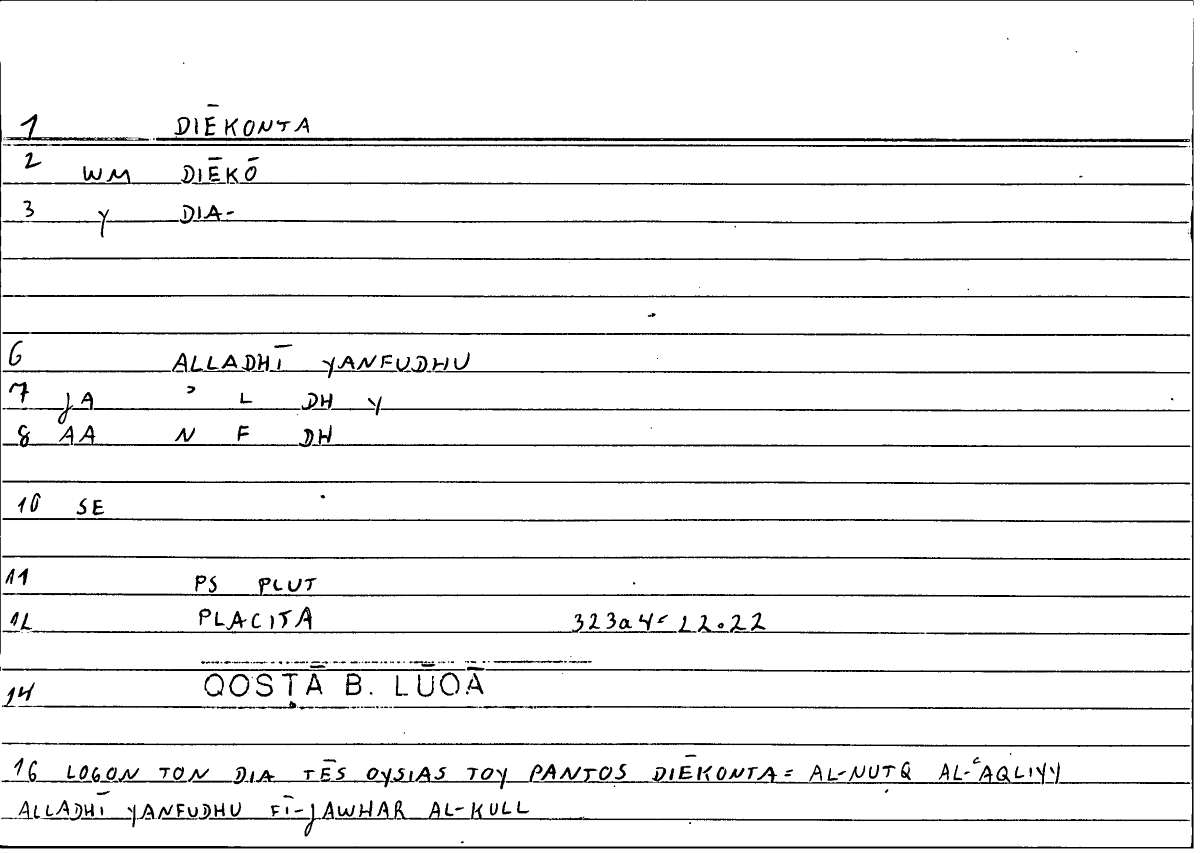 1 DIĒKONTA
2 WM DIĒKŌ
3 Y DIA-
6 ALLADHĪ YANFUDHU
7 JA ʾ L DH Y
8 AA N F DH
10 SE
11 PS PLUT
12 PLACITA 323a4=22.22
14 QOSṬĀ B. LŪQĀ
16 LOGON TON DIA TĒS OYSIAS TOY PANTOS DIĒKONTA= AL-NUTQ AL-ʿAQLIYY
ALLADHĪ YANFUDHU FĪ-JAWHAR AL-KULL